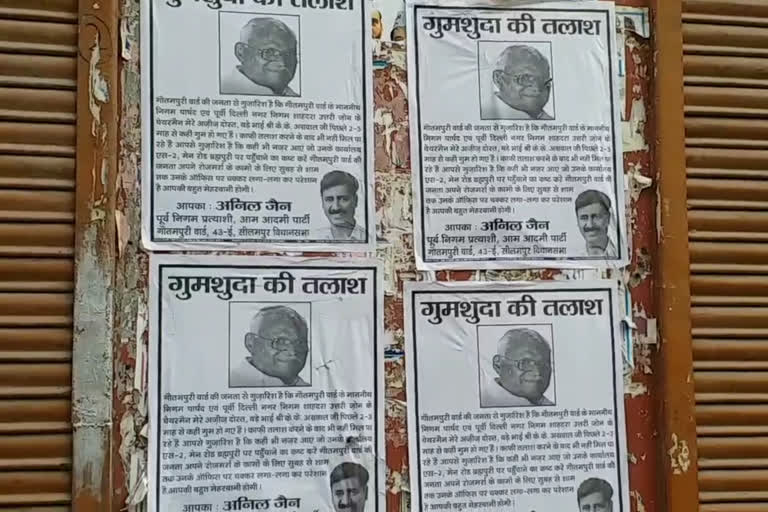 गुमशुदा की तलाश
गौतमपुरी वार्ड की जनता से गुजारिश है कि गौतमपुरी वार्ड के माननीय
निगम पार्षद एवं पूर्वी दिल्ली नगर निगम शाहदरा उत्तरी जोन के
चेयरमैन मेरे अजीज दोस्त, बड़े भाई श्री के.के. अग्रवाल जी पिछले 2-3
माह से कहीं गुम हो गए हैं। काफी तलाश करने के बाद भी नहीं मिल पा
रहे हैं आपसे गुजारिश है कि कहीं भी नजर आए जो उनके कार्यालय
एस-2, मेन रोड ब्रह्मपुरी पर पहुँचाने का कष्ट करें गौतमपुरी वार्ड की
जनता अपने रोजमर्रा के कामों के लिए सुबह से शाम
तक उनके ऑफिस पर चक्कर लगा-लगा कर परेशान
है आपकी बहुत मेहरबानी होगी।
आपका : अनिल जैन
पूर्व निगम प्रत्याशी, आम आदमी पार्टी
गौतमपुरी वार्ड, 43-ई, सीलमपुर विधानसभा
गुमशुदा की तलाश
गौतमपुरी वार्ड की जनता से गुजारिश है कि गौतमपुरी वार्ड के माननीय
निगम पार्षद एवं पूर्वी दिल्ली नगर निगम शाहदरा उत्तरी जोन के
चेयरमैन मेरे अजीज दोस्त, बड़े भाई श्री के.के. अग्रवाल जी पिछले 2-3
माह से कहीं गुम हो गए हैं। काफी तलाश करने के बाद भी नहीं मिल पा
रहे हैं आपसे गुजारिश है कि कहीं भी नजर आए जो उनके कार्यालय
एस-2, मेन रोड ब्रह्मपुरी पर पहुँचाने का कष्ट करें गौतमपुरी वार्ड की
जनता अपने रोजमर्रा के कामों के लिए सुबह से शाम
तक उनके ऑफिस पर चक्कर लगा-लगा कर परेशान
है आपकी बहुत मेहरबानी होगी।
आपका : अनिल जैन
पूर्व निगम प्रत्याशी, आम आदमी पार्टी
गौतमपुरी वार्ड, 43-ई, सीलमपुर विधानसभा
गुमशुदा की तलाश
गौतमपुरी वार्ड की जनता से गुजारिश है कि गौतमपुरी वार्ड के माननीय
निगम पार्षद एवं पूर्वी दिल्ली नगर निगम शाहदरा उत्तरी जोन के
चेयरमैन मेरे अजीज दोस्त, बड़े भाई श्री के.के. अग्रवाल जी पिछले 2-3
माह से कहीं गुम हो गए हैं। काफी तलाश करने के बाद भी नहीं मिल पा
रहे हैं आपसे गुजारिश है कि कहीं भी नजर आए जो उनके कार्यालय
एस-2, मेन रोड ब्रह्मपुरी पर पहुँचाने का कष्ट करें गौतमपुरी वार्ड की
जनता अपने रोजमर्रा के कामों के लिए सुबह से शाम
तक उनके ऑफिस पर चक्कर लगा-लगा कर परेशान
है आपकी बहुत मेहरबानी होगी।
आपका : अनिल जैन
गुमशुदा की तलाश
गौतमपुरी वार्ड की जनता से गुजारिश है कि गौतमपुरी वार्ड के माननीय
निगम पार्षद एवं पूर्वी दिल्ली नगर निगम शाहदरा उत्तरी जोन के
चेयरमैन मेरे अजीज दोस्त, बड़े भाई श्री के.के. अग्रवाल जी पिछले 2-3
माह से कहीं गुम हो गए हैं। काफी तलाश करने के बाद भी नहीं मिल पा
रहे हैं आपसे गुजारिश है कि कहीं भी नजर आए जो उनके कार्यालय
एस-2, मेन रोड ब्रह्मपुरी पर पहुँचाने का कष्ट करें गौतमपुरी वार्ड की
जनता अपने रोजमर्रा के कामों के लिए सुबह से शाम
तक उनके ऑफिस पर चक्कर लगा-लगा कर परेशान
है आपकी बहुत मेहरबानी होगी।
आपका : अनिल जैन